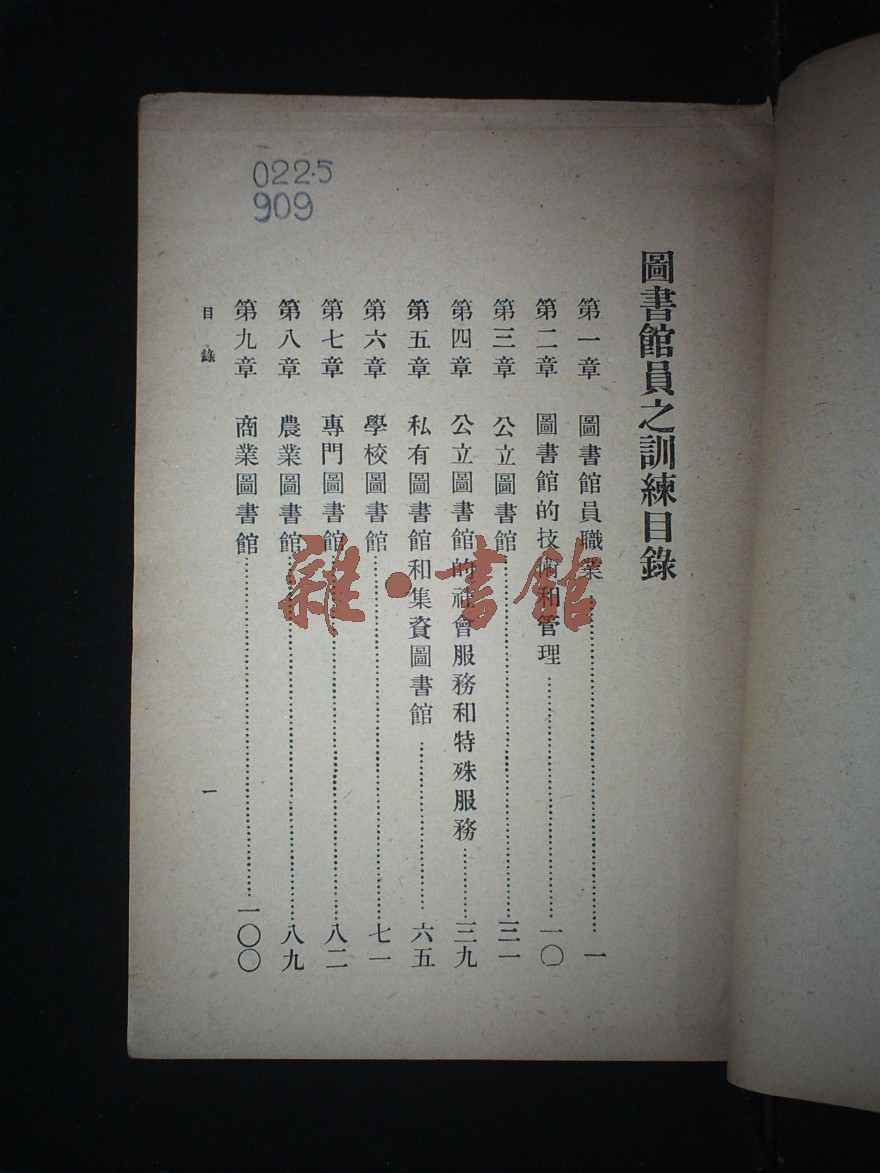 022.5
909
圖書館員之訓練目錄
第一章 圖書館員職業……一
第二章 圖書館的技術和管理……一〇
第三章 公立圖書館……三一
第四章 公立圖書館的社會服務和特殊服務……三九
第五章 私有圖書館和集資圖書館……六五
第六章 學校圖書館……七一
第七章 專門圖書館……八二
第八章 農業圖書館……八九
第九章 商業圖書館……一〇〇
目錄
一
雜·書館